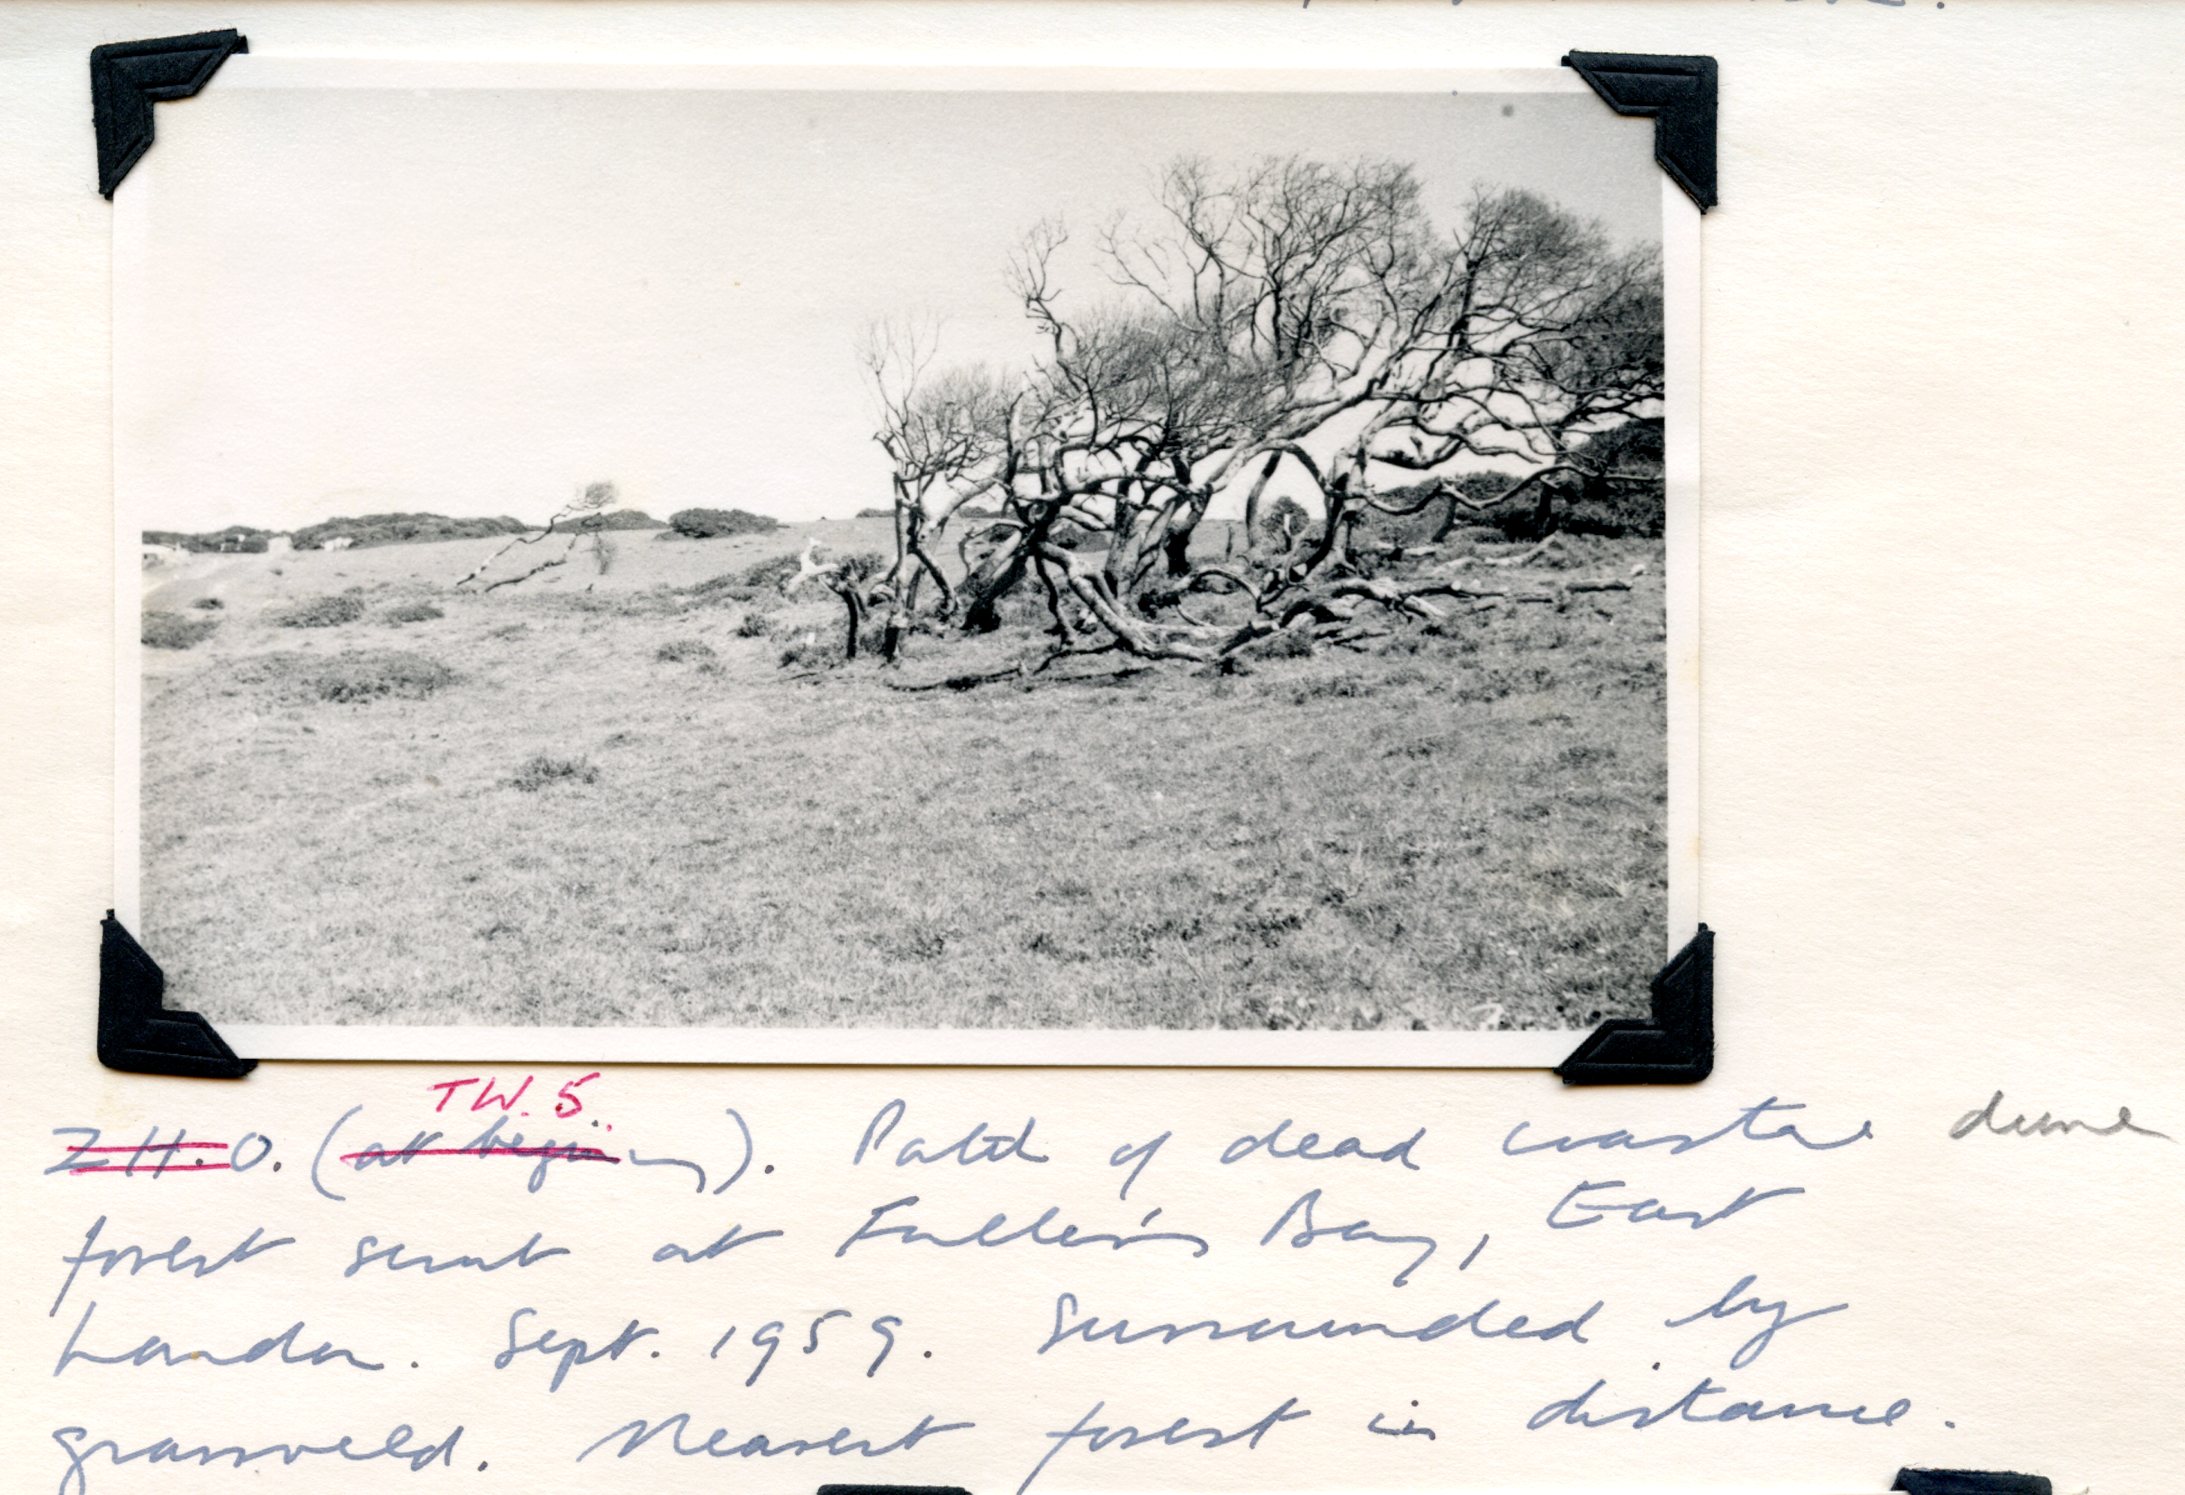 TW. 5.
Z H. O. (at beginning). Patch of dead coastal dune
forest scrub at Fuller's Bay, East
London. Sept. 1959. Surrounded by
grassveld. Nearest forest in distance.